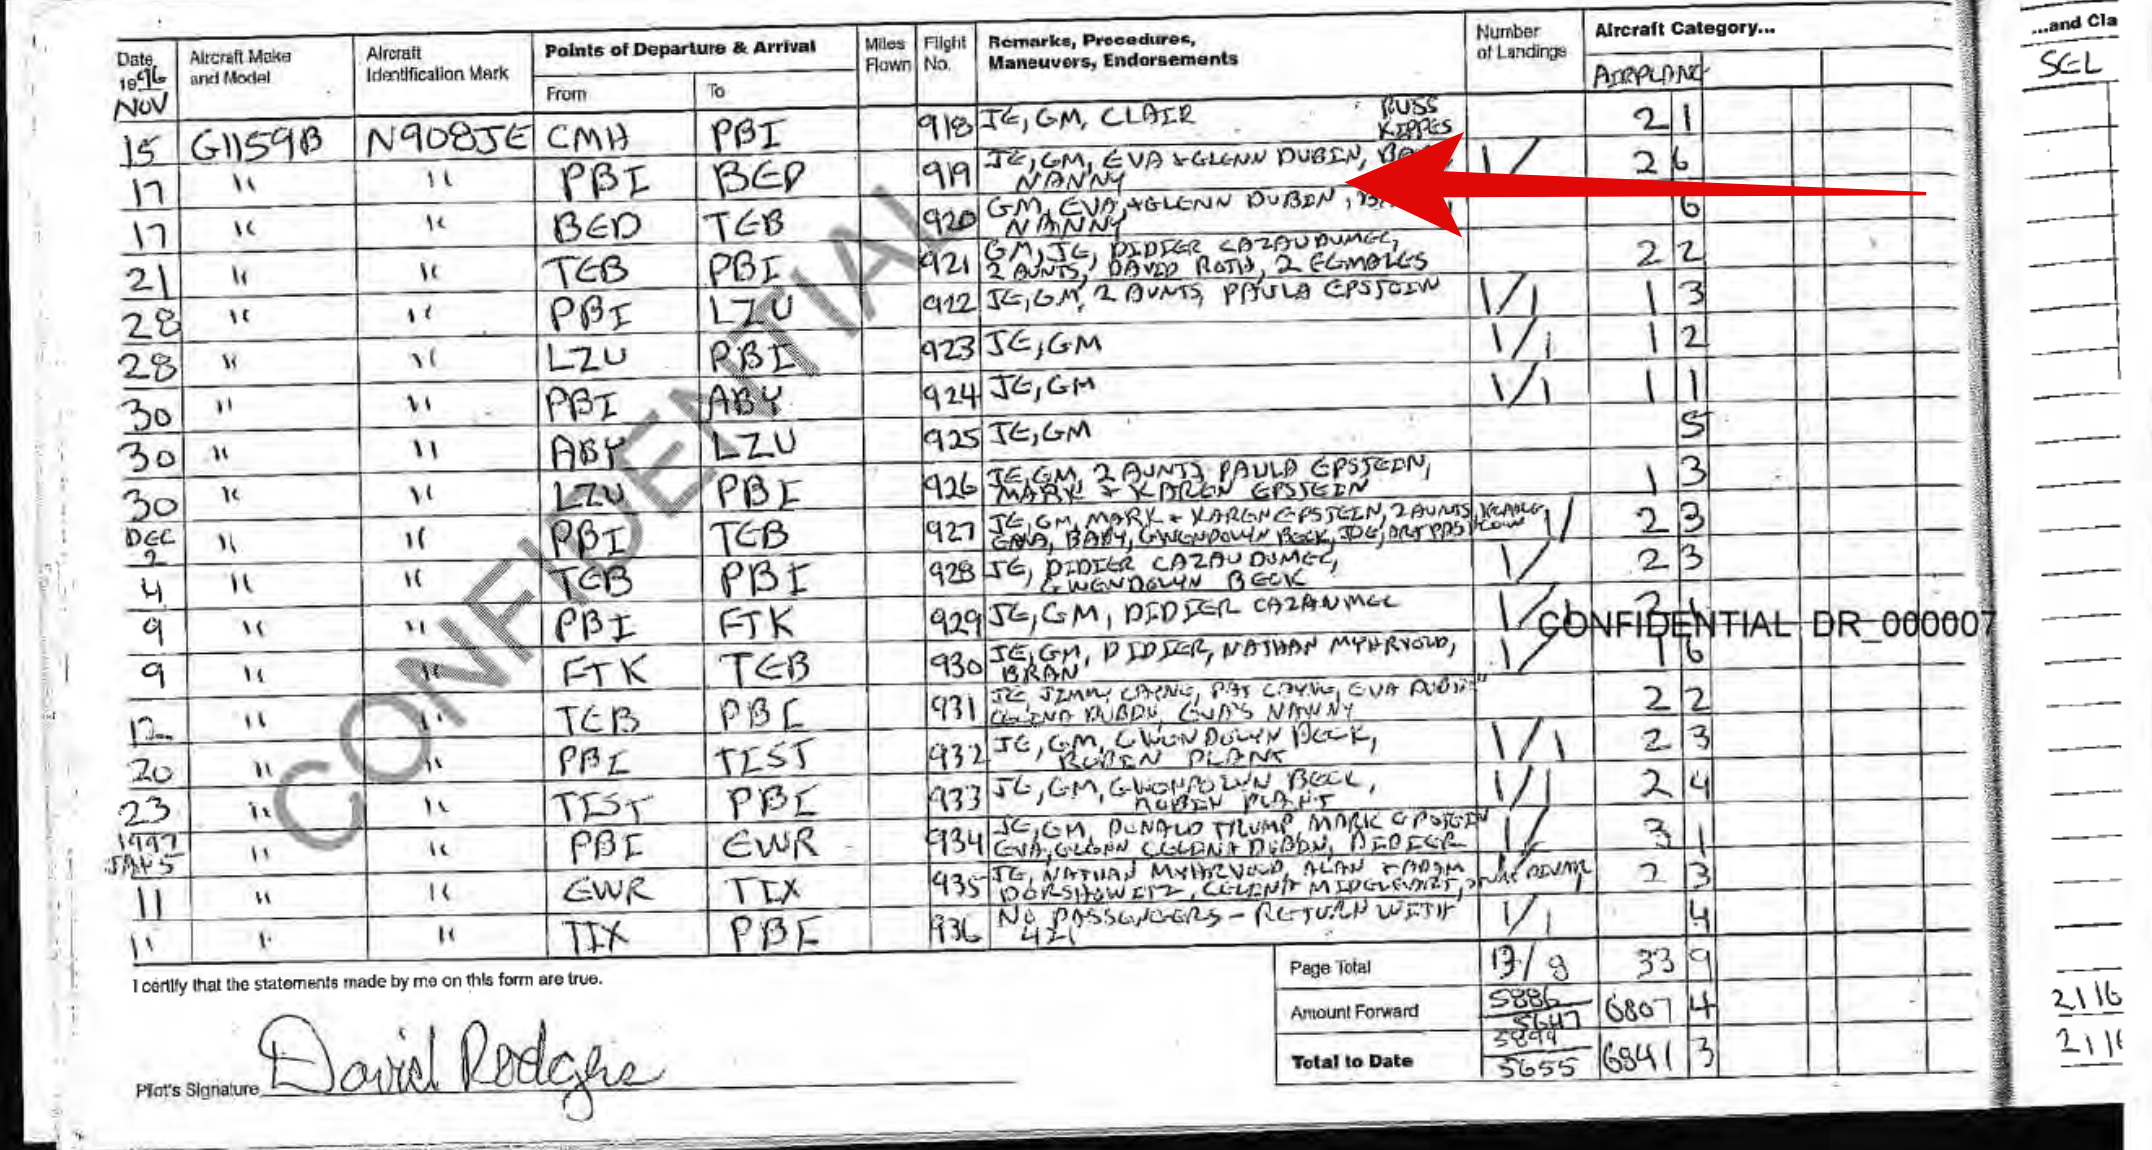 Date 1996 NOV
Aircraft Make and Model
Aircraft Identification Mark
Points of Departure & Arrival
From To
Miles Flown
Flight No.
Remarks, Procedures, Maneuvers, Endorsements
Number of Landings
Aircraft Category...
AIRPLANE
...and Cla
SEL
15 G1159B N908JE CMH PBI 918 JE, GM, CLAIR RUSS KIPPES 2 1
17 " " PBI BED 919 JE, GM, EVA + GLENN DUBIN, NANNY 1/ 2 6
17 " " BED TEB 920 GM, EVA + GLENN DUBIN, NANNY 6
21 " " TEB PBI 921 GM, JE, DIDIER CAZAUDUMEC,
2 AUNTS, DAVID ROTH, 2 FEMALES 2 2
28 " " PBI LZU 922 JE, GM, 2 AUNTS, PAULA EPSTEIN 1/1 1 3
28 " " LZU PBI 923 JE, GM 1/1 1 2
30 " " PBI ABY 924 JE, GM 1/1 1 1
30 " " ABY LZU 925 JE, GM 5
30 " " LZU PBI 926 JE, GM, 2 AUNTS, PAULA EPSTEIN,
MARK + KAREN EPSTEIN 1 3
DEC 2 " " PBI TEB 927 JE, GM, MARK + KAREN EPSTEIN, 2 AUNTS,
BABY, GWENDOLYN BECK, JOE, 1/ 2 3
4 " " TEB PBI 928 JE, DIDIER CAZAUDUMEC,
GWENDOLYN BECK 1/ 2 3
9 " " PBI FTK 929 JE, GM, DIDIER CAZANMEC
CONFIDENTIAL DR_000007
9 " " FTK TEB 930 JE, GM, DIDIER, NATHAN MYHRVOLD,
BRAN 1/ 1 6
12 " " TEB PBI 931 JE, JIMMY CAYNE, PAT CAYNE, EVA DUBIN
CELINA DUBIN, EVA'S NANNY 2 2
20 " " PBI TIST 932 JE, GM, GWENDOLYN BECK,
ROBIN PLANT 1/1 2 3
23 " " TIST PBI 933 JE, GM, GWENDOLYN BECK,
ROBIN PLANT 1/1 2 4
1997 JAN 5 " " PBI EWR 934 JE, GM, DONALD TRUMP, MARK EPSTEIN
EVA, GLENN CELINA DUBIN, DIDIER 3 1
11 " " EWR TIX 935 JE, NATHAN MYHRVOLD, ALAN + ADAM
DORSHOWITZ, CELINA MIDELFART, 2 3
11 " " TIX PBI 936 NO PASSENGERS - RETURN WITH
421 1/1 4
CONFIDENTIAL
I certify that the statements made by me on this form are true.
Page Total 13/8 33 9
Amount Forward 5886 5647 6807 4
Total to Date 5899 5655 6841 3
Pilot's Signature David Rodgers
2116